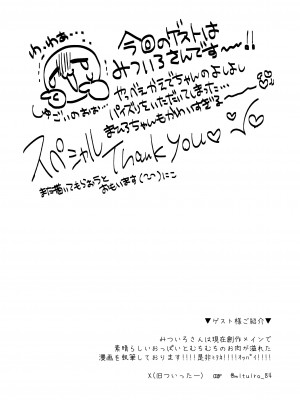 わ…わぁ…
しゅごいのぉぉ…
今回のゲストは
みついろさんです〜〜!!
やっべぇかえでちゃんのよしよし
パイズリをいただいてしまった…
まひろちゃんもかわいすぎる〜〜
スペシャル Thank you♡
また描いてもらおうと
おもいます(^^)にこ
▼ゲスト様ご紹介▼
みついろさんは現在創作メインで
素晴らしいおっぱいとむちむちのお肉が溢れた
漫画を執筆しております!!!!是非!!!!
X(旧ついったー) @mituiro_84